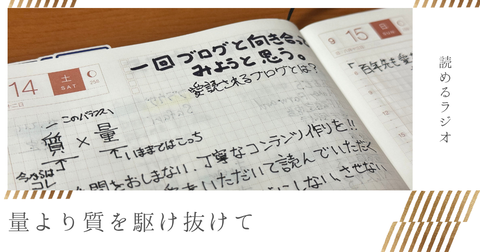 14
土
SAT
一回ブログと向き合って
みようと思う。
愛読されるブログとは?
このバランス
質×量
いままではこっち
今からは
コレ
間をおしまない、丁寧なコンテンツ作りを!!
をいただいて読んでいただく
にしない、させない
9
15
日
SUN
「百年先も
読めるラジオ
量より質を駆け抜けて